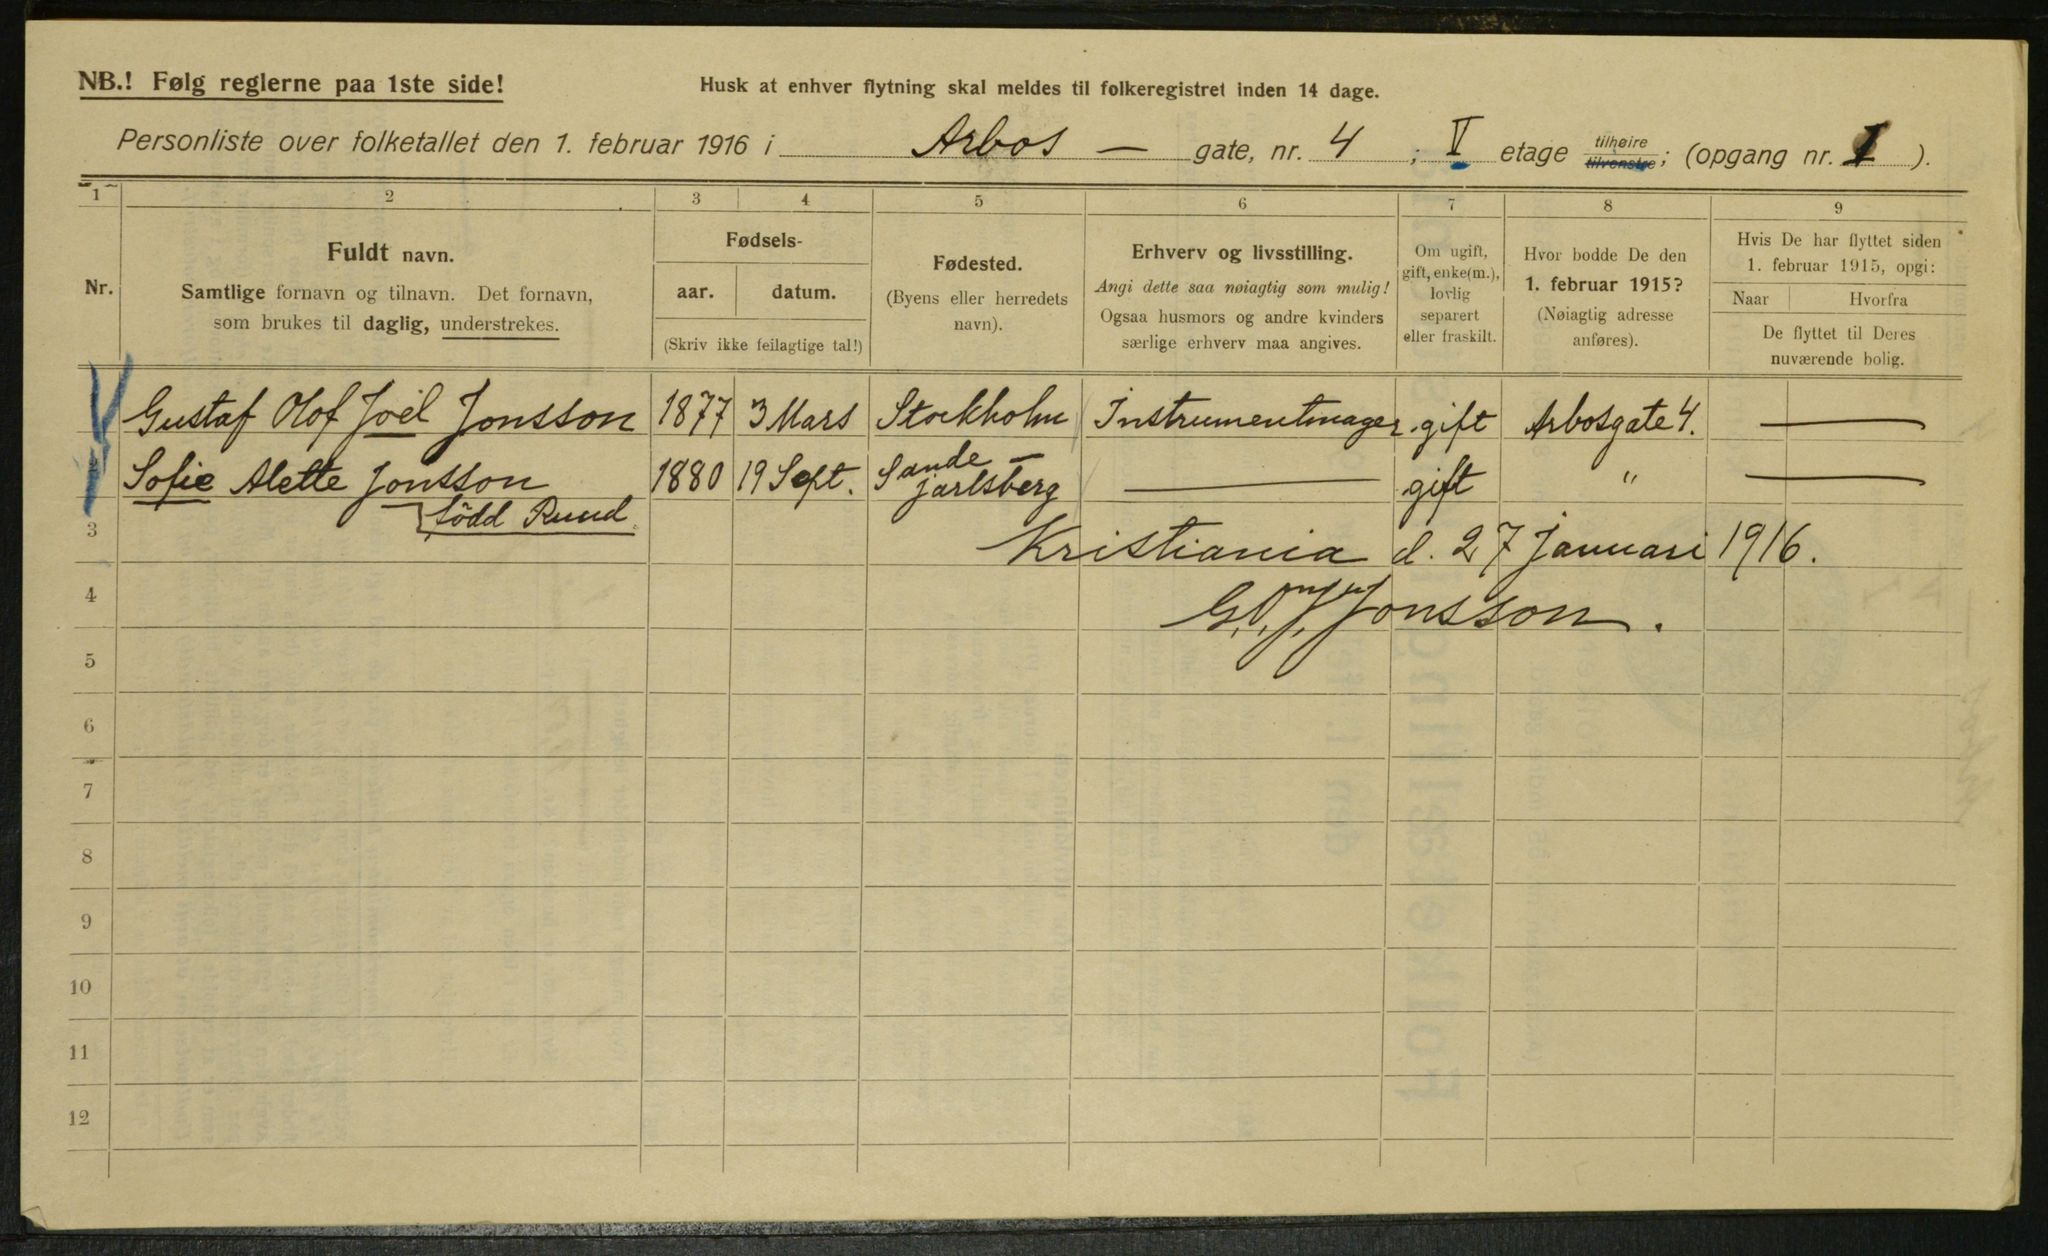 NB.! Følg reglerne paa 1ste side!
Husk at enhver flytning skal meldes til folkeregistret inden 14 dage.
Personliste over folketallet den 1. februar 1916 i Arbos — gate, nr. 4 ; V etage tilhøire tilvenstre; (opgang nr. 1 ).
1 2 3 4 5 6 7 8 9
Nr.
Fuldt navn.
Samtlige fornavn og tilnavn. Det fornavn,
som brukes til daglig, understrekes.
Fødsels-
aar. datum.
(Skriv ikke feilagtige tal!)
Fødested.
(Byens eller herredets
navn).
Erhverv og livsstilling.
Angi dette saa nøiagtig som mulig!
Ogsaa husmors og andre kvinders
særlige erhverv maa angives.
Om ugift,
gift, enke(m.),
lovlig
separert
eller fraskilt.
Hvor bodde De den
1. februar 1915?
(Nøiagtig adresse
anføres).
Hvis De har flyttet siden
1. februar 1915, opgi:
Naar Hvorfra
De flyttet til Deres
nuværende bolig.
Gustaf Olof Joël Jonsson 1877 3 Mars Stockholm Instrumentmager gift Arbosgate 4. —
Sofie Alette Jonsson 1880 19 Sept. Sande — jarlsberg — gift " —
född Ruud.
3
Kristiania d. 27 Januari 1916.
4
G. O. J. Jonsson.
5
6
7
8
9
10
11
12